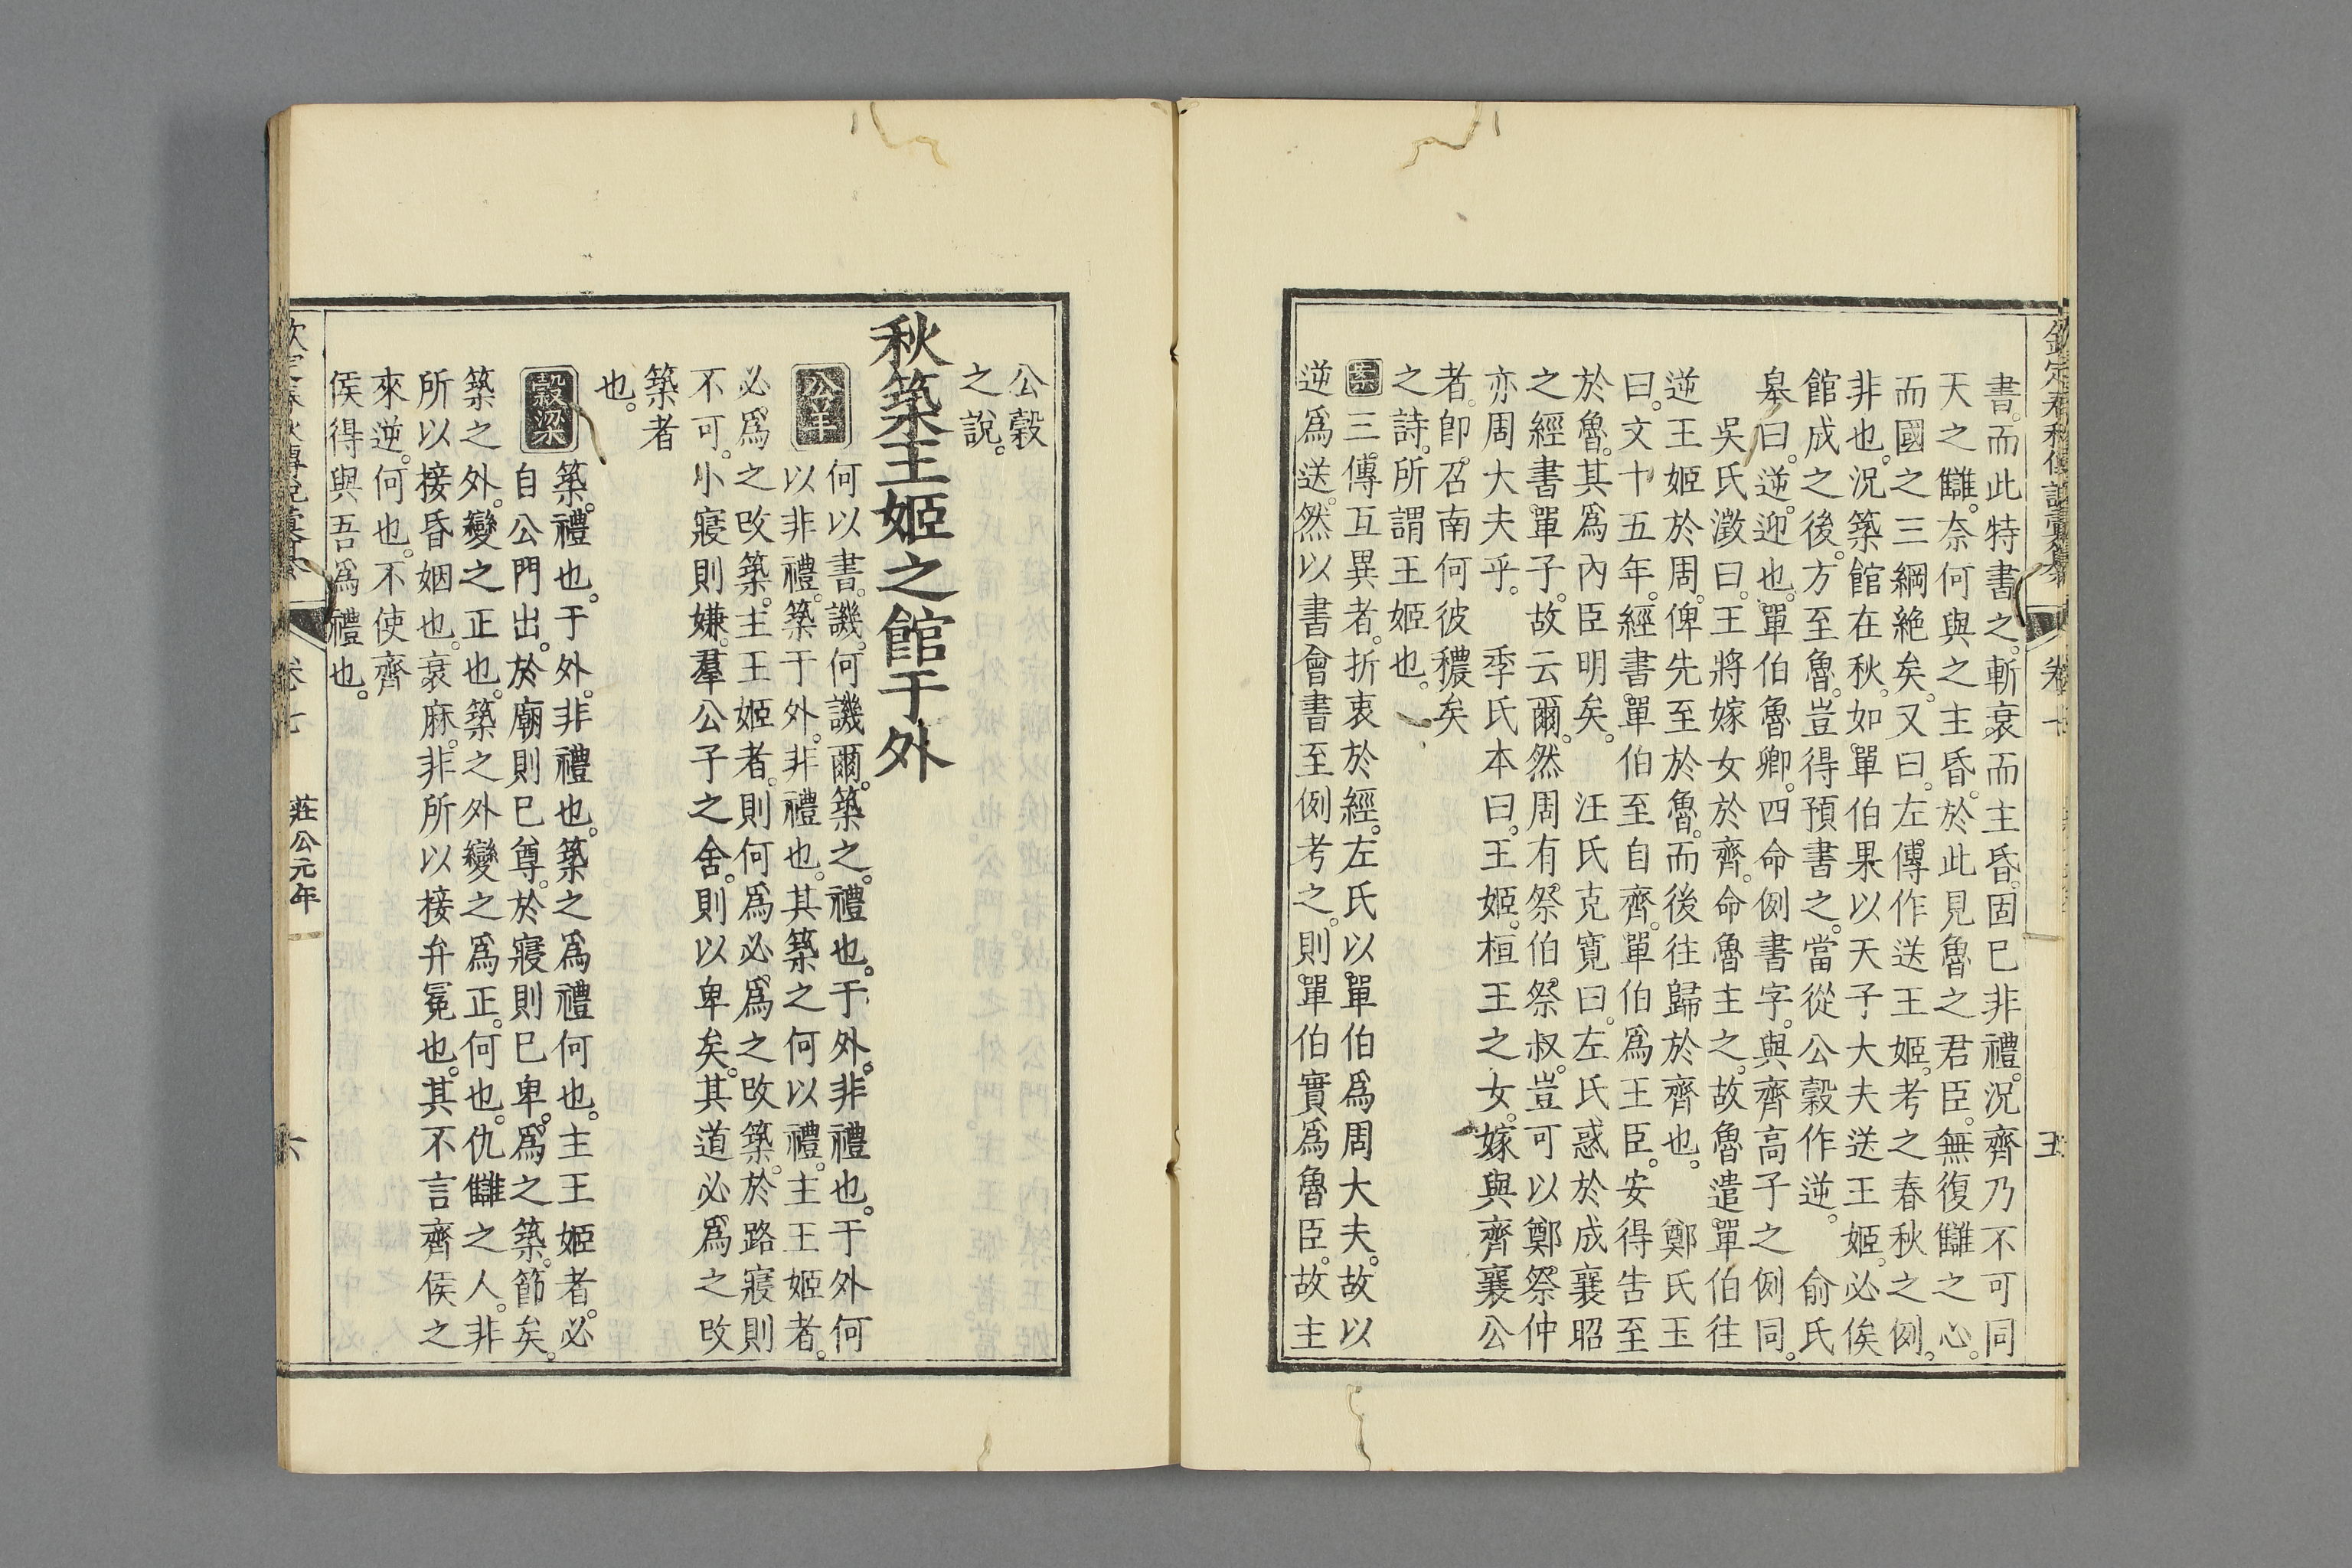 書。而此特書之。斬衰而主昏。固已非禮。況齊乃不可同
天之讎。奈何與之主昏。於此見魯之君臣。無復讎之心。
而國之三綱絶矣。又曰。左傳作送王姬。考之春秋之例。
非也。況築館在秋。如單伯果以天子大夫送王姬。必俟
館成之後。方至魯。豈得預書之。當從公穀作逆。 俞氏
皋曰。逆。迎也。單伯魯卿。四命例書字。與齊高子之例同。
吳氏澂曰。王將嫁女於齊。命魯主之。故魯遣單伯往
逆王姬於周。俾先至於魯。而後往歸於齊也。 鄭氏玉
曰。文十五年。經書。單伯至自齊。單伯爲王臣。安得告至
於魯。其爲內臣明矣。 汪氏克寬曰。左氏惑於成襄昭
之經書單子。故云爾。然周有祭伯祭叔。豈可以鄭祭仲
亦周大夫乎。 季氏本曰。王姬。桓王之女。嫁與齊襄公
者。卽召南何彼穠矣
之詩。所謂王姬也。
案三傳互異者。折衷於經。左氏以單伯爲周大夫。故以
逆爲送。然以書會書至例考之。則單伯實爲魯臣。故主
卷七
五
公穀
之說。
秋築王姬之館于外
公羊
何以書。譏。何譏爾。築之。禮也。于外。非禮也。于外何
以非禮。築于外。非禮也。其築之何以禮。主王姬者。
必爲之改築。主王姬者。則何爲必爲之改築。於路寢則
不可。小寢則嫌。羣公子之舍。則以卑矣。其道必爲之改
築者
也。
穀梁
築。禮也。于外。非禮也。築之爲禮何也。主王姬者。必
自公門出。於廟則已尊。於寢則已卑。爲之築。節矣。
築之外。變之正也。築之外變之爲正。何也。仇讎之人。非
所以接昏姻也。衰麻。非所以接弁冕也。其不言齊侯之
來逆。何也。不使齊
侯得與吾爲禮也。
卷七
莊公元年
六